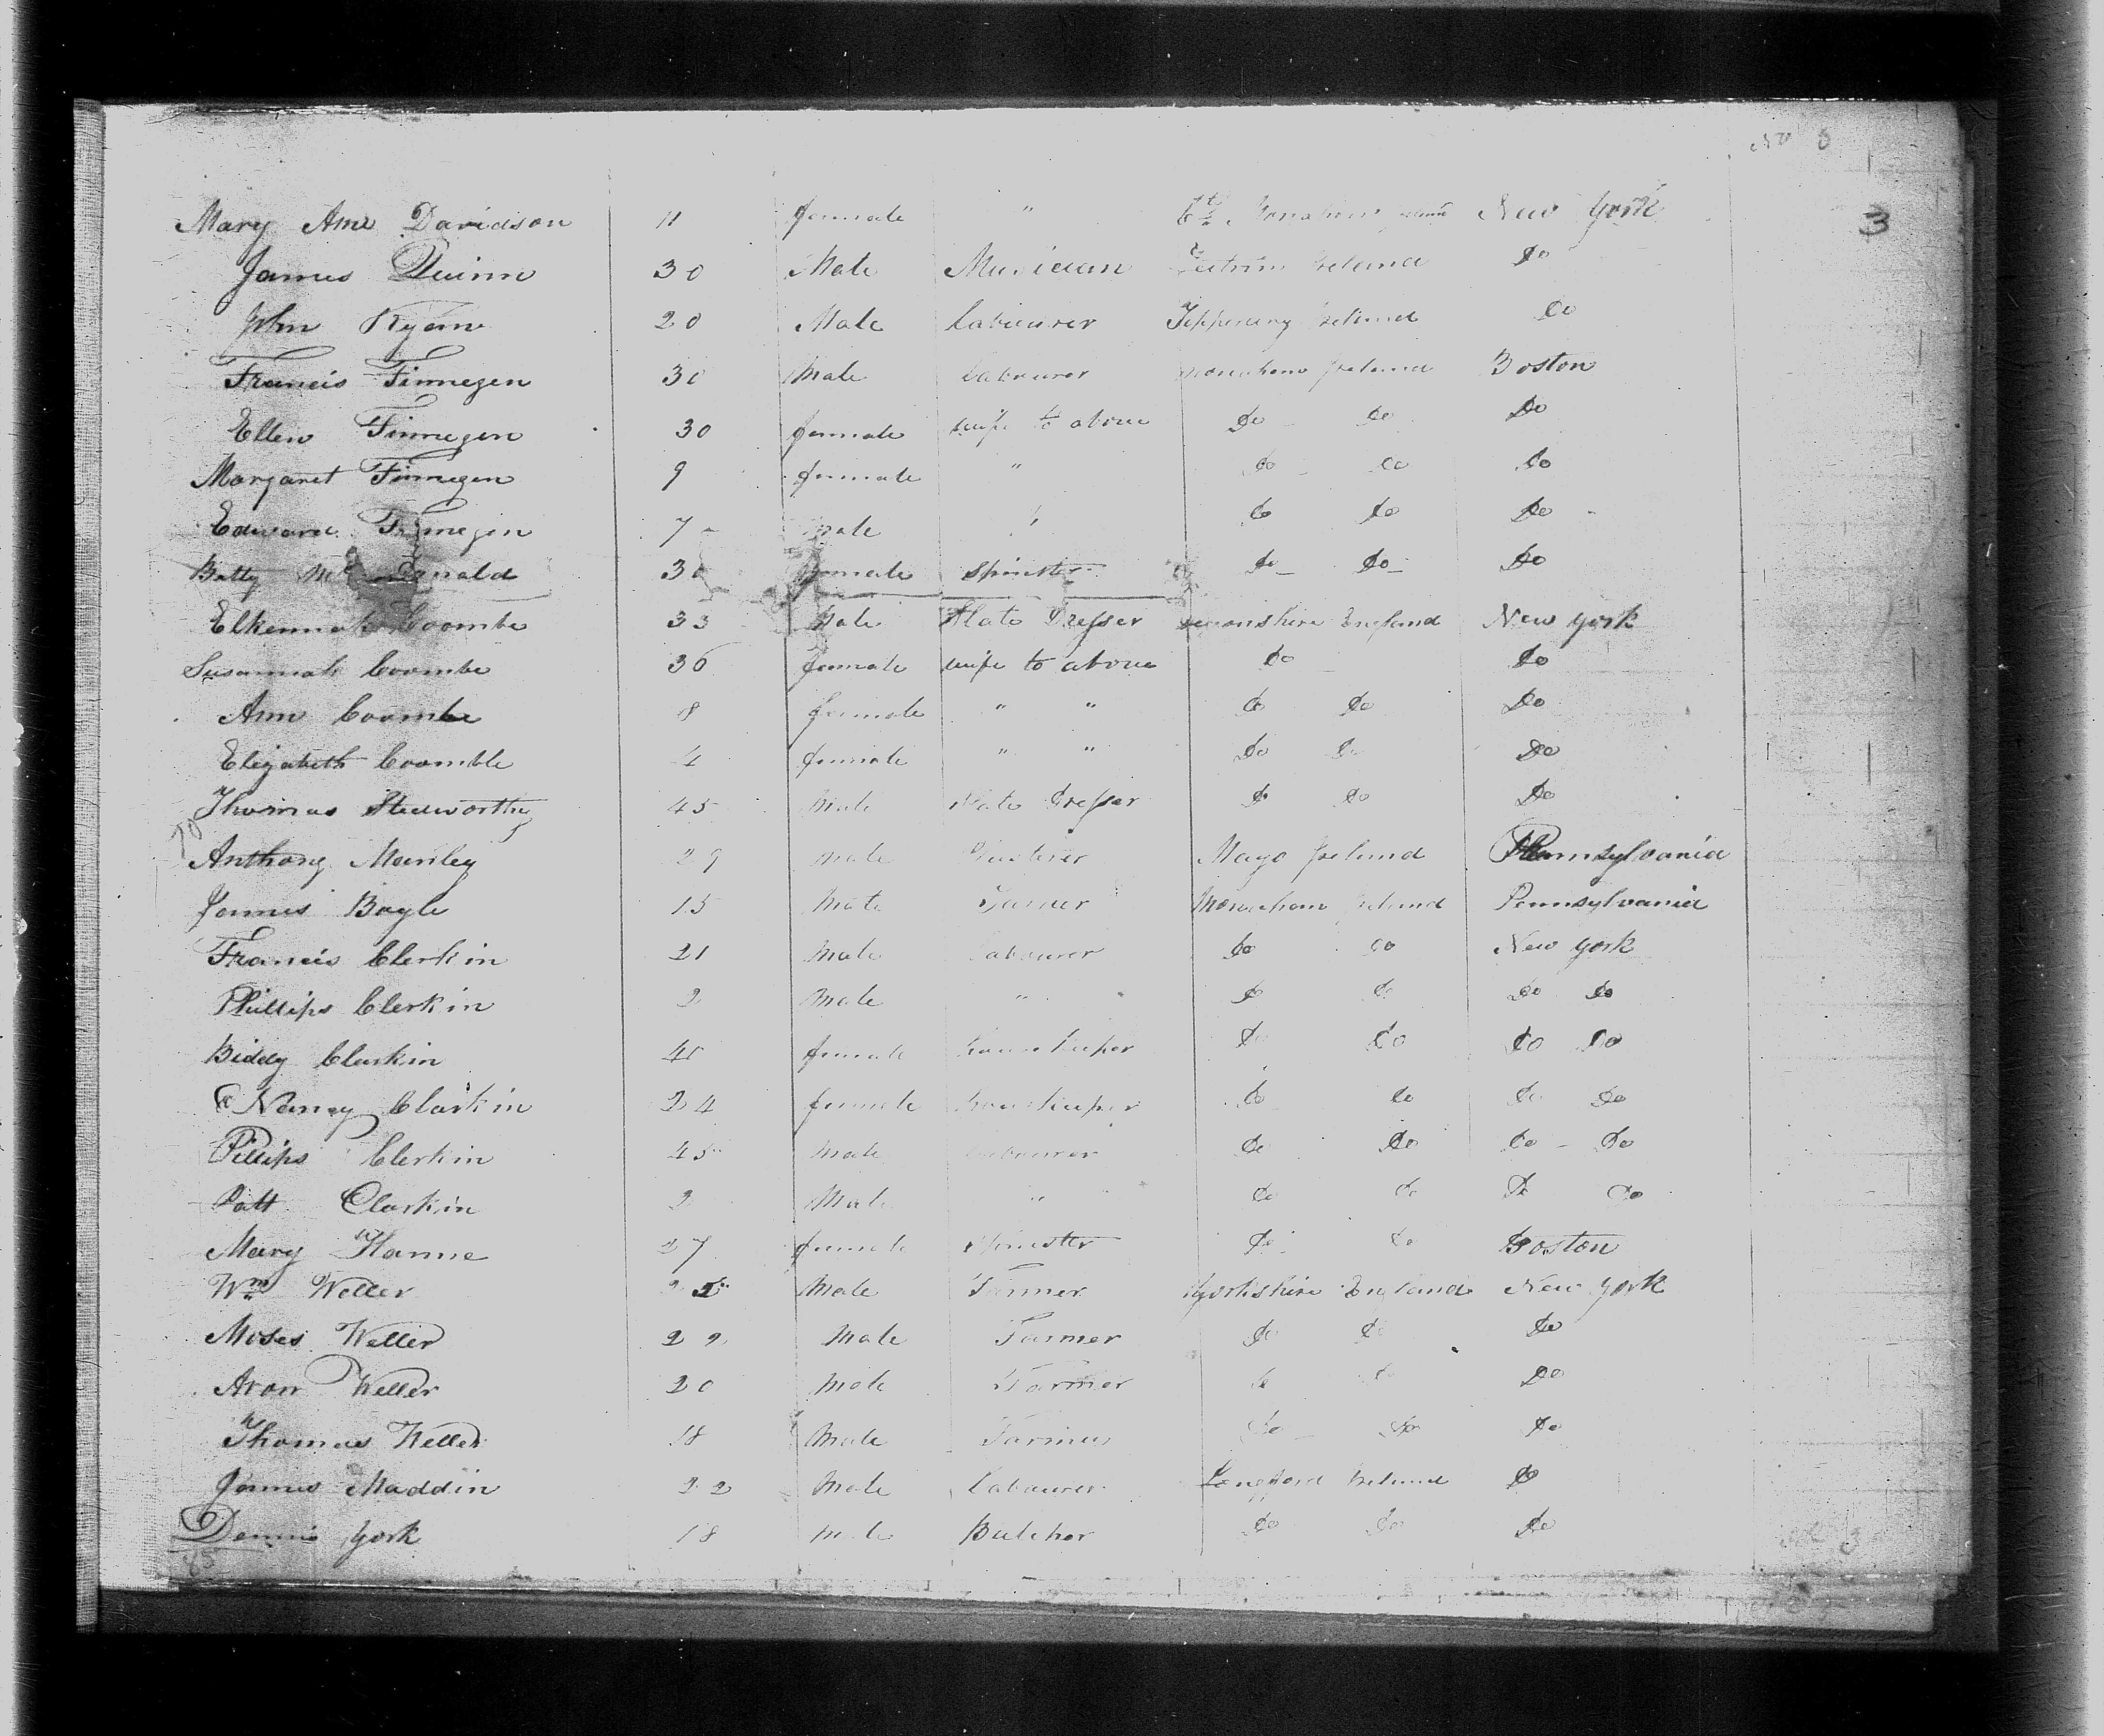 No 3
3
Mary Ann Davidson 11 female " Ct. Monahan New York
James Quinn 30 Male Musician Leitrim Ireland Do
John Ryan 20 Male Labourer Tipperary Ireland Do
Francis Finnegen 30 Male Labourer Monahan Ireland Boston
Ellen Finnegen 30 female wife to above Do Do Do
Margaret Finnegen 9 female " Do Do Do
Edward Finnegen 7 Male " Do Do Do
Betty Mc Donald 30 female Spinster Do Do Do
Elkennah Coombe 33 Male Slate Dresser Devonshire England New York
Susannah Coombe 36 female wife to above Do Do
Ann Coombe 8 female " " Do Do Do
Elizabeth Coomble 4 female " " Do Do Do
Thomas 45 Male Slate Dresser Do Do Do
70
Anthony Manley 29 Male Mayo Ireland Pennsylvania
James Boyle 15 Male Monahan Ireland Pennsylvania
Francis Clerkin 21 Male Labourer Do Do New York
Phillips Clerkin 2 Male " Do Do Do Do
Biddy Clarkin 40 female housekeeper Do Do Do Do
Nancy Clarkin 24 female housekeeper Do Do Do Do
Pillips Clerkin 45 Male Labourer Do Do Do Do
Patt Clarkin 2 Male " Do Do Do Do
Mary 27 female Spinster Do Do Boston
Wm Weller Male Farmer Yorkshire England New York
Moses Weller 22 Male Farmer Do Do Do
Aron Weller 20 Male Farmer Do Do Do
Thomas Weller 18 Male Farmer Do Do Do
James Maddin 22 Male Labourer Longford Ireland Do
Dennis York 18 Male Butcher Do Do Do
85